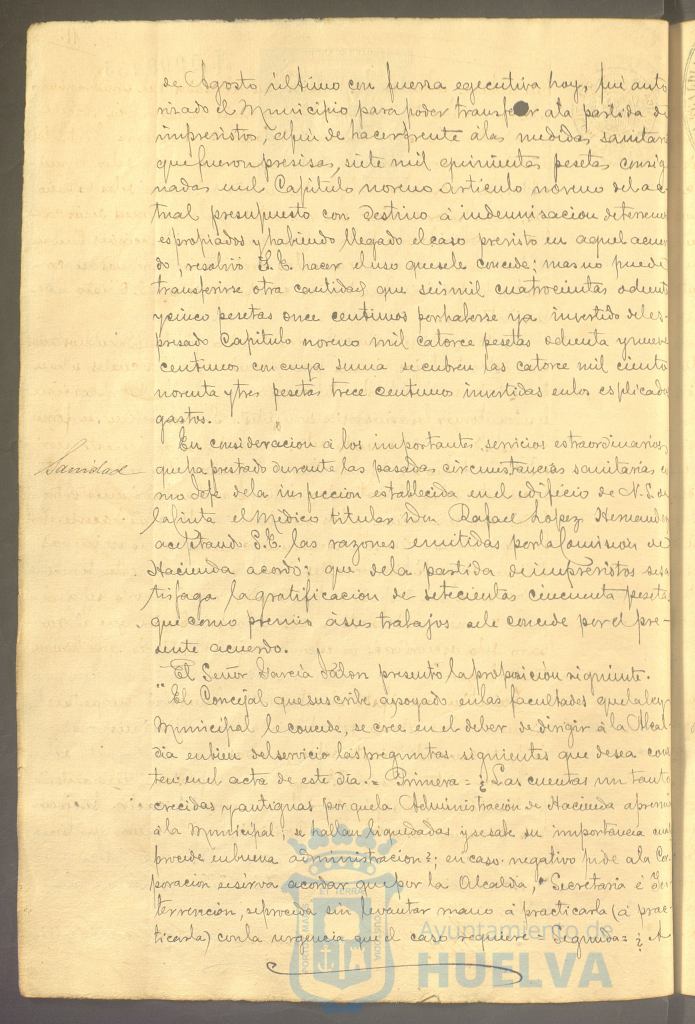 de Agosto último con fuerza egecutiva hoy, fué auto
rizado el Municipio para poder transferir a la partida de
imprevistos, á fin de hacer frente á las medidas sanitari
que fueron presisas, siete mil quinientas pesetas consig
nadas en el Capítulo noveno artículo noveno del ac
tual presupuesto con destino á indemnisacion de terrenos
espropiados y habiendo llegado el caso previsto en aquel acuer
do, resolvió S.E. hacer el uso que se le concede; mas no puede
transferirse otra cantidad que seis mil cuatrocientas ochenta
y cinco pesetas once centimos por haberse ya invertido del es-
presado Capitulo noveno mil catorce pesetas ochenta y nueve
centimos con cuya suma se cubren las catorce mil ciento
noventa y tres pesetas trece centimos invertidas en los esplicados
gastos.
En consideracion á los importantes servicios estraordinarios
Sanidad
que ha prestado durante las pasadas circunstancias sanitarias co
mo Jefe de la inspeccion establecida en el edificio de N. S. de
la Cinta el Médico titular Don Rafael Lopez Hernandez
aceptando S.E. las razones emitidas por la Comision de
Hacienda acordó: que de la partida de imprevistos se sa
tisfaga la gratificacion de setecientas cincuenta pesetas
que como premio á sus trabajos se le concede por el pre-
sente acuerdo.
El Señor García Jalon presentó la proposicion siguiente.
"El Concejal que suscribe, apoyado en las facultades que la ley
Municipal le concede, se cree en el deber de dirigir á la Alcal
dia en bien del servicio las preguntas siguientes que desea cons
ten en el acta de este día. = Primera = ¿Las cuentas un tanto
crecidas y antiguas por que la Administración de Hacienda apremia
á la Municipal; se hallan liquidadas y se sabe su importancia cual
procede en buena administracion?; en caso negativo pide a la Cor
poracion se sirva acordar que por la Alcaldía, Secretaria é In
tervencion, se proceda sin levantar mano á practicarla (á prac-
ticarla) con la urgencia que el caso requiere = Segunda = ¿ A
EL TERRA
PORTUS MARIS
CUSTODIA
Ayuntamiento de
HUELVA